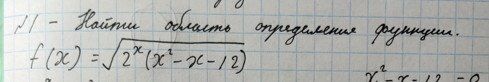 №1 - Найти область определения функции.
f(x) = √(2ˣ(x² - x - 12))
x² - x - 12 = 0